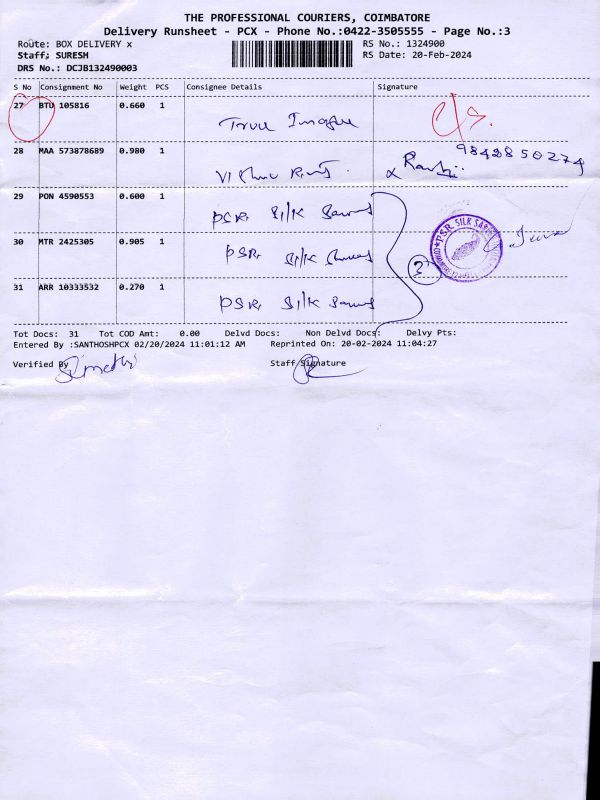 THE PROFESSIONAL COURIERS, COIMBATORE
Delivery Runsheet - PCX - Phone No.:0422-3505555 - Page No.:3
Route: BOX DELIVERY x
RS No.: 1324900
Staff: SURESH
RS Date: 20-Feb-2024
DRS No.: DCJB132490003
S No Consignment No Weight PCS Consignee Details Signature
27 BTU 105816 0.660 1 True Image
28 MAA 573878689 0.980 1 9842850274
29 PON 4590553 0.600 1 PSR Silk Sarees
30 MTR 2425305 0.905 1 PSR Silk Sarees
PSR SILK
31 ARR 10333532 0.270 1 PSR Silk Sarees
Tot Docs: 31 Tot COD Amt: 0.00 Delvd Docs: Non Delvd Docs: Delvy Pts:
Entered By :SANTHOSHPCX 02/20/2024 11:01:12 AM Reprinted On: 20-02-2024 11:04:27
Verified By Staff Signature